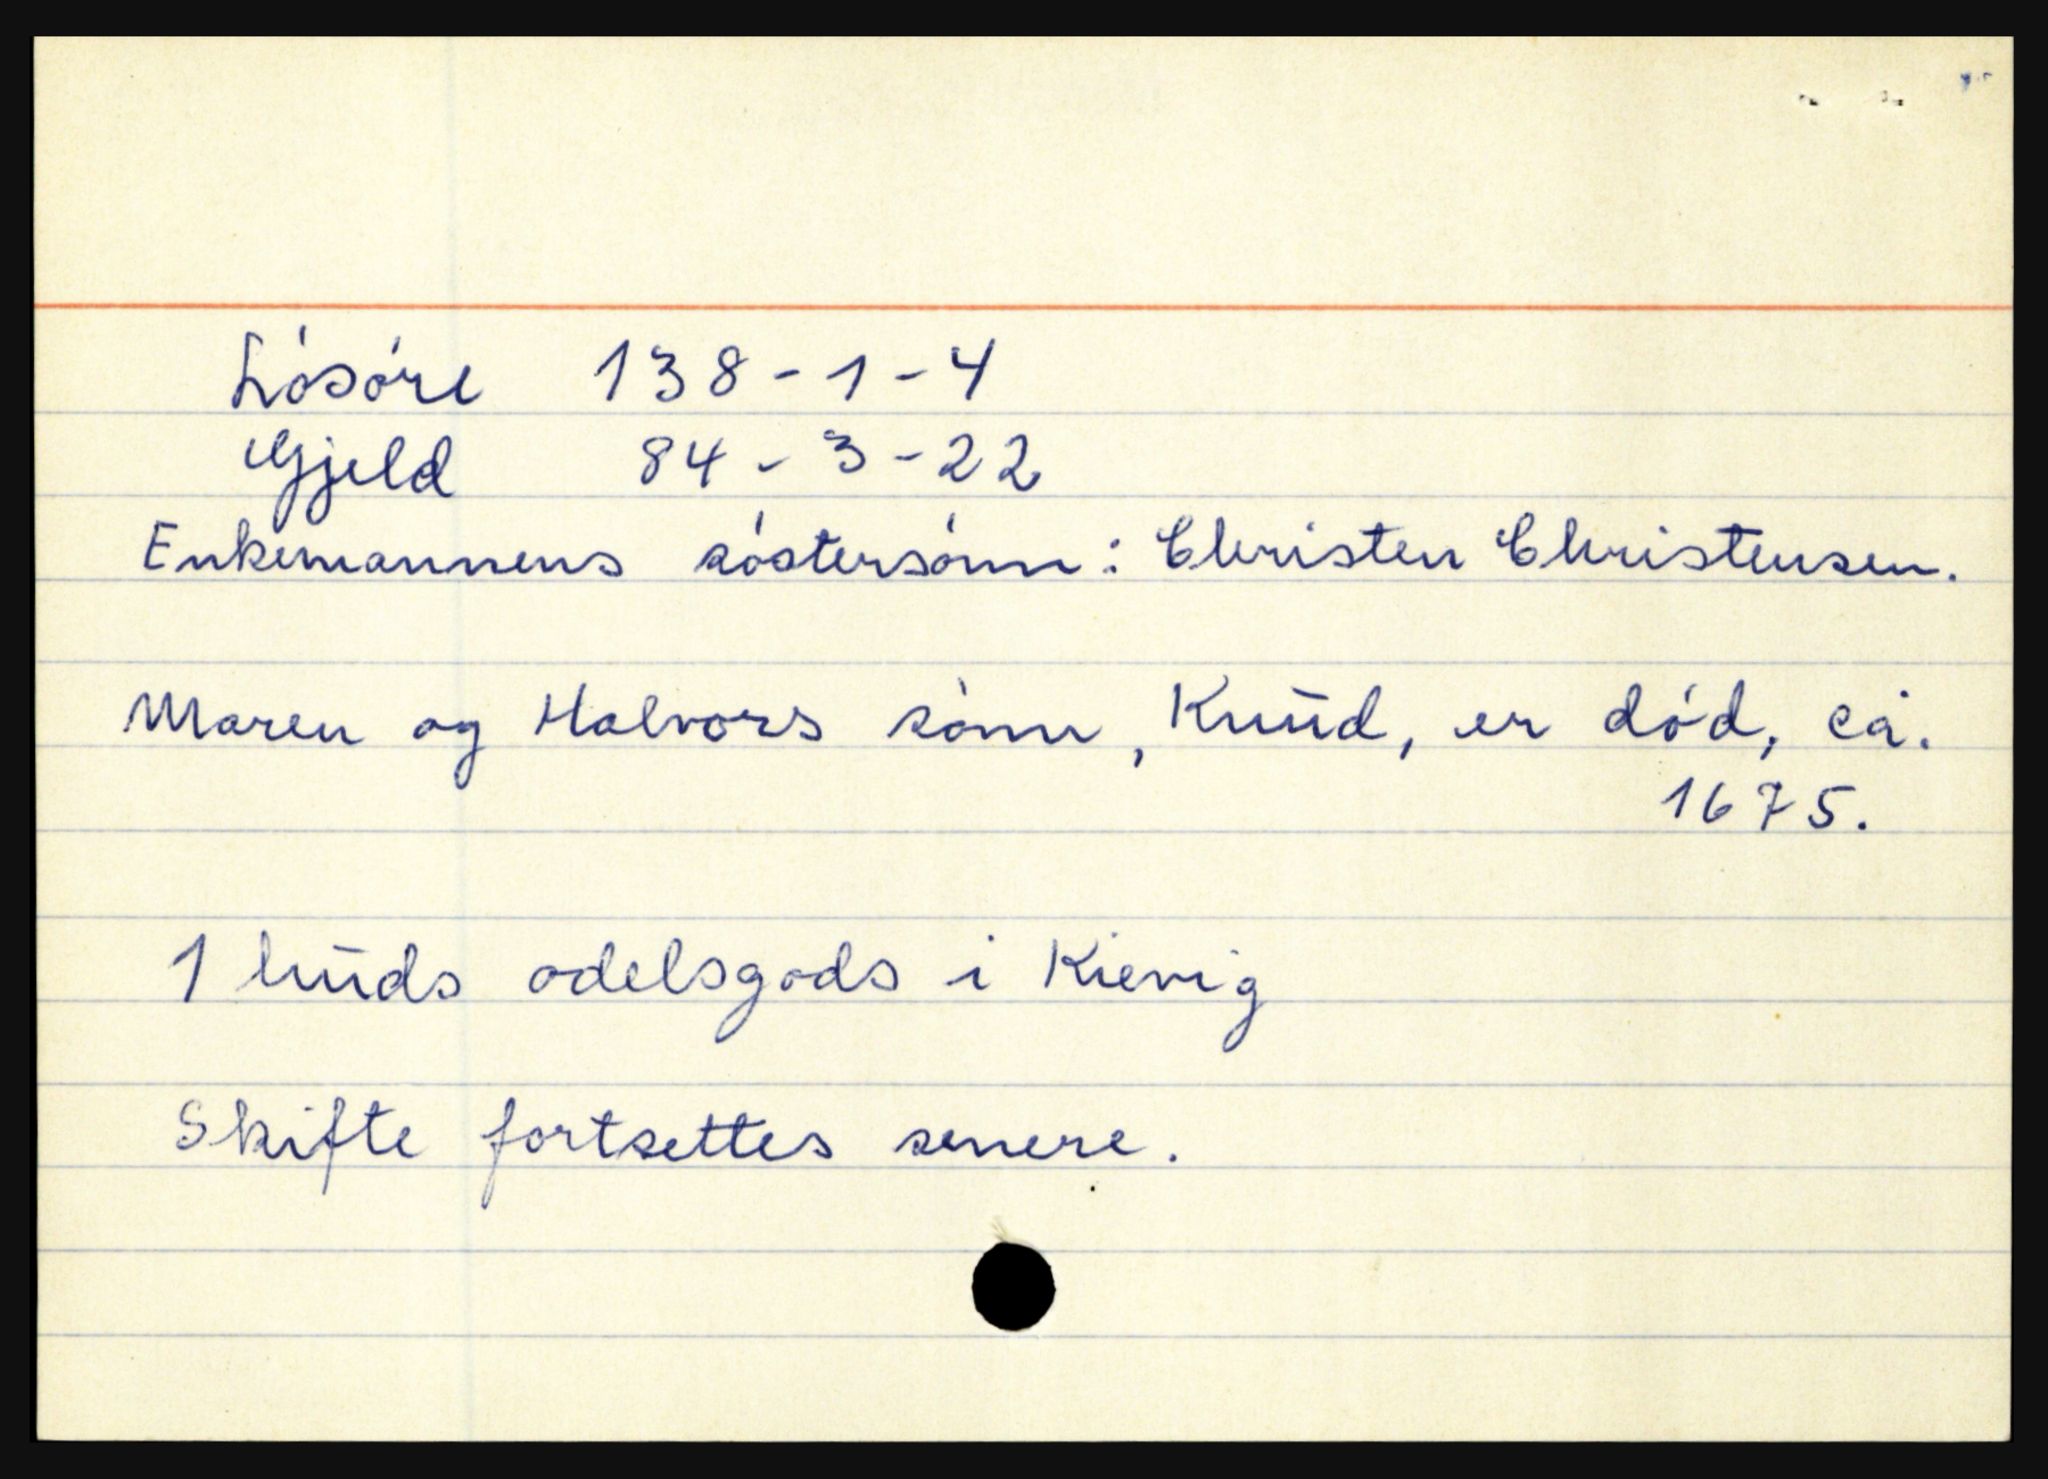 Lósóre 138-1-4
Gjeld 84-3-22
Enkemannens sóstersónn: Christen Christensen.
Maren og Halvors sónn, Knūd, er dód, ca.
1675.
1 hūds odelsgods i Kievig
Skifte fortsettes senere.